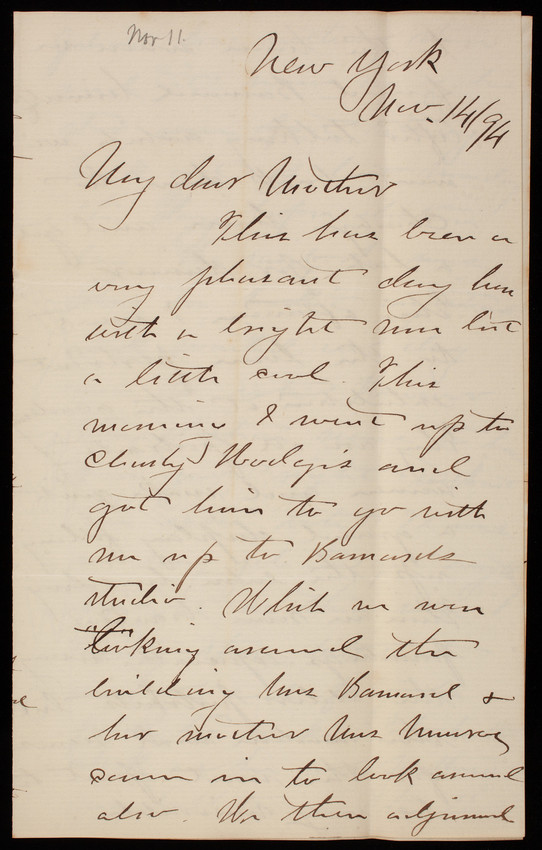 Nov 11.
New York
Nov. 14/94
My dear Mother
This has been a
very pleasant day here
with a bright sun but
a little cool. This
morning I went up to
Hodge's and
got him to go with
me up to Barnard's
studio. While we were
looking around the
building Mrs Barnard &
her mother Mrs Munroe
came in to look around
also. We then adjourned